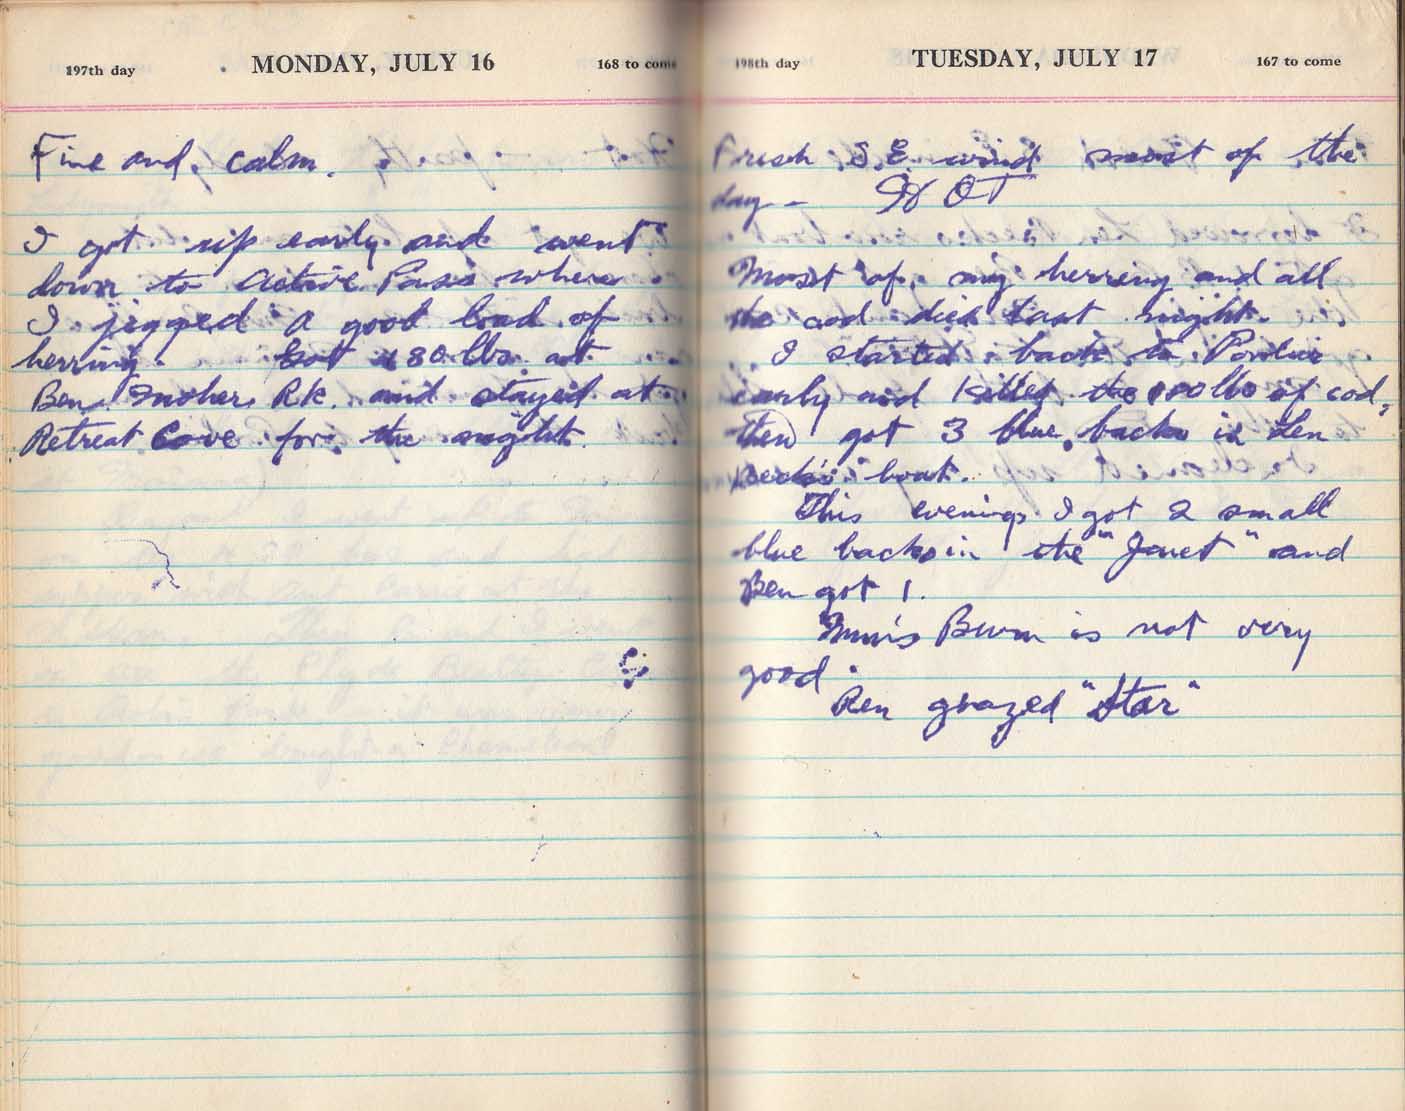 197th day MONDAY, JULY 16 168 to come
Fine and calm.
I got up early and went
down to Active Pass where
I jigged a good load of
herring. Got 180 lbs. at
Ben Rk. and stayed at
Retreat Cove for the night.
198th day TUESDAY, JULY 17 167 to come
Fresh S.E. wind most of the
day - HOT
Most of my herring and all
the cod died last night.
I started back to
early and killed the 100 lbs of cod,
then got 3 blue backs in Len
boat.
This evening I got 2 small
blue backs in the "Janet" and
Ben got 1.
Mum's Burn is not very
good.
Ren grazed "Star"